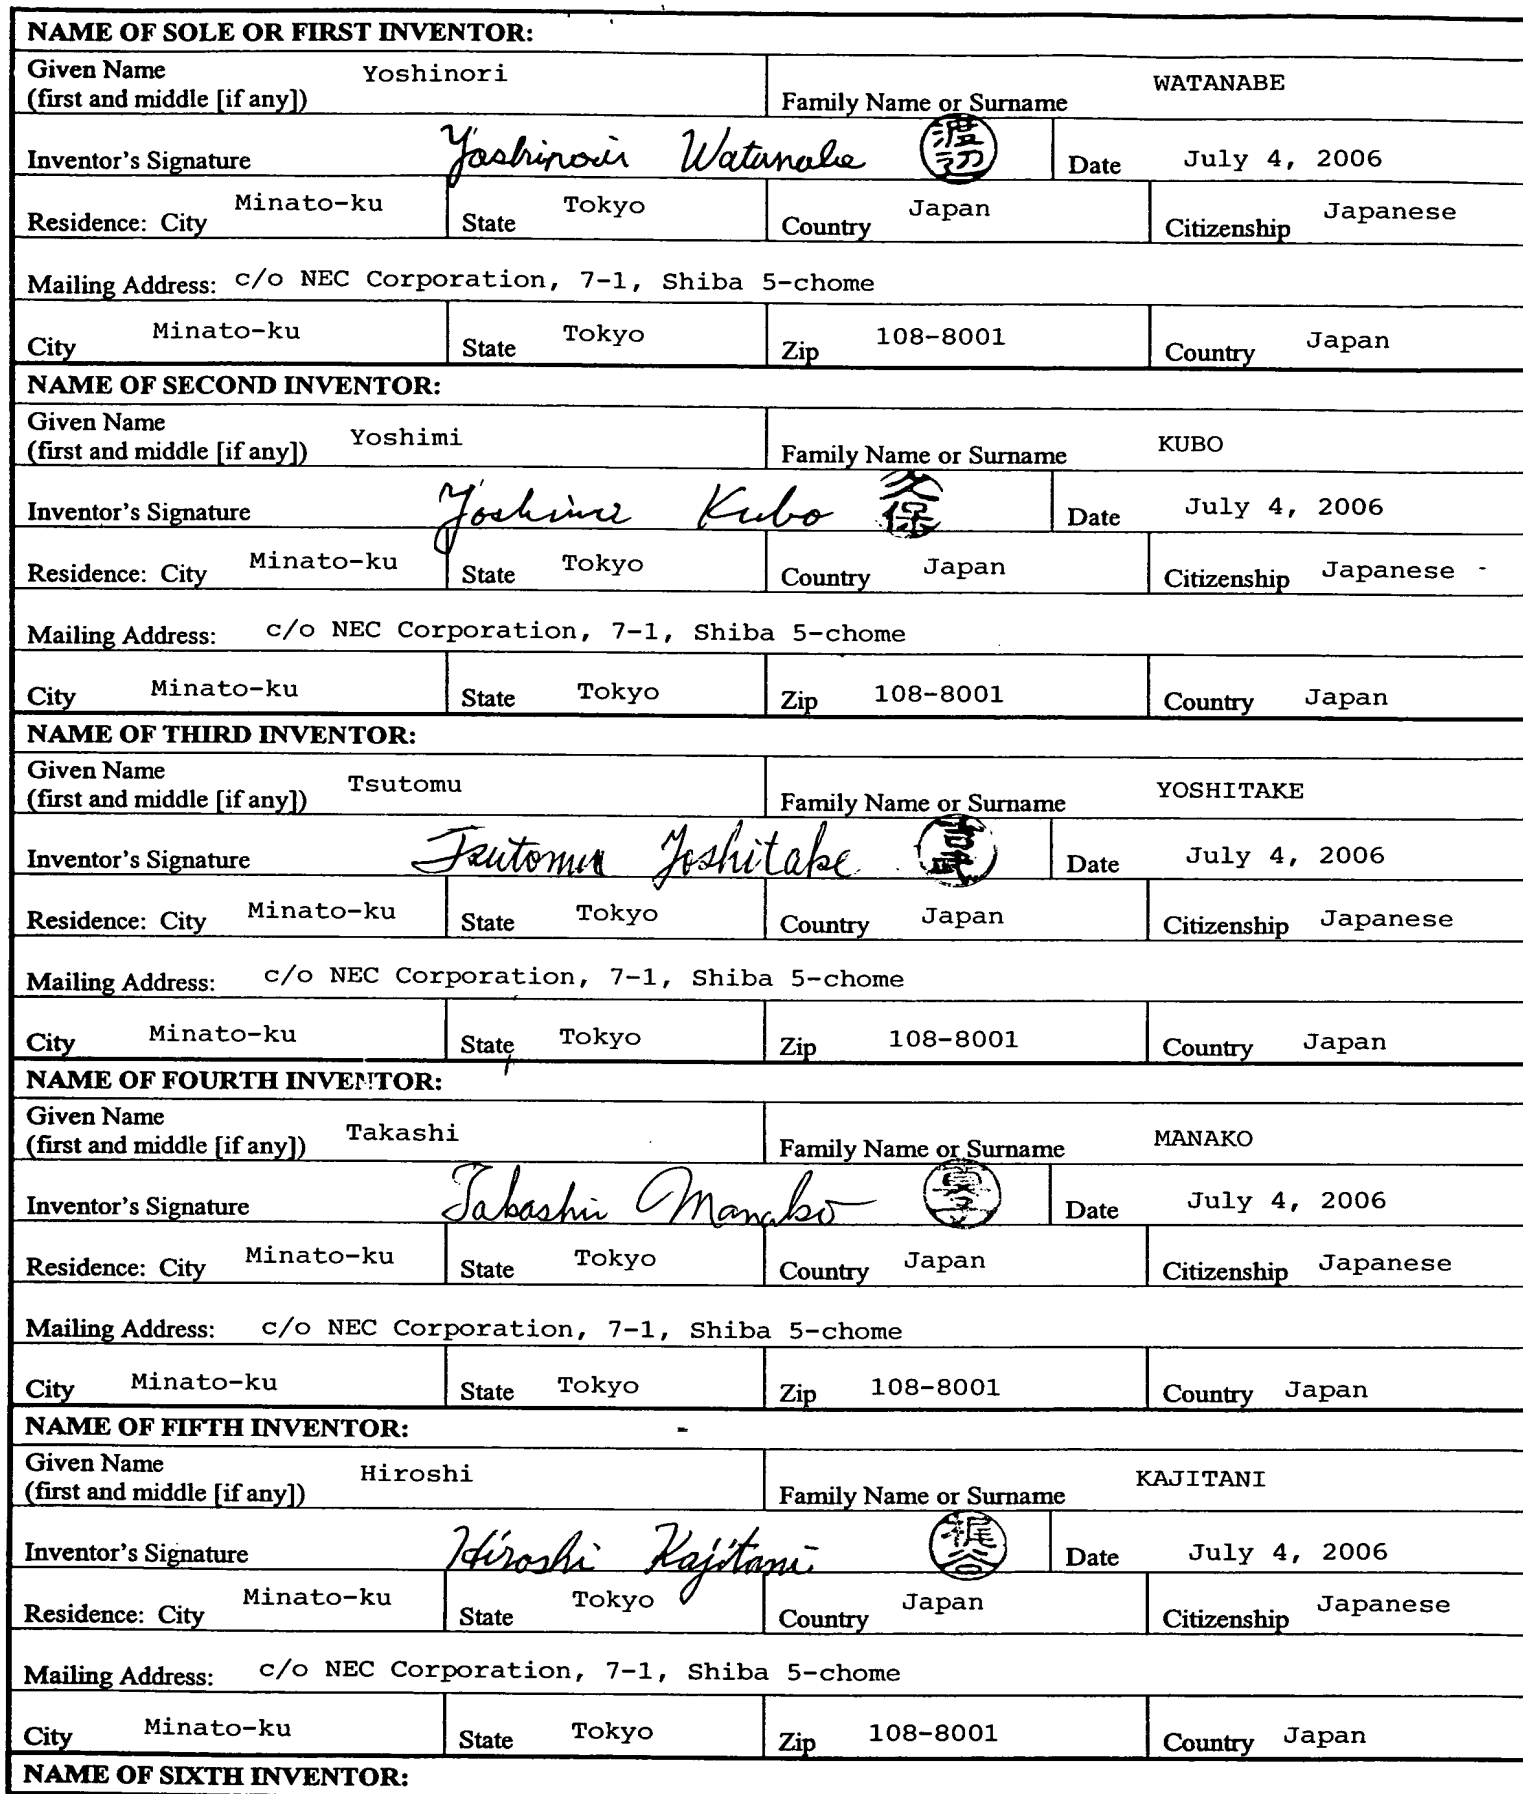 NAME OF SOLE OR FIRST INVENTOR:
Given Name (first and middle [if any]) Yoshinori Family Name or Surname WATANABE
Inventor's Signature Yoshinori Watanabe 渡辺 Date July 4, 2006
Residence: City Minato-ku State Tokyo Country Japan Citizenship Japanese
Mailing Address: c/o NEC Corporation, 7-1, Shiba 5-chome
City Minato-ku State Tokyo Zip 108-8001 Country Japan
NAME OF SECOND INVENTOR:
Given Name (first and middle [if any]) Yoshimi Family Name or Surname KUBO
Inventor's Signature Yoshimi Kubo 久保 Date July 4, 2006
Residence: City Minato-ku State Tokyo Country Japan Citizenship Japanese
Mailing Address: c/o NEC Corporation, 7-1, Shiba 5-chome
City Minato-ku State Tokyo Zip 108-8001 Country Japan
NAME OF THIRD INVENTOR:
Given Name (first and middle [if any]) Tsutomu Family Name or Surname YOSHITAKE
Inventor's Signature Tsutomu Yoshitake 吉武 Date July 4, 2006
Residence: City Minato-ku State Tokyo Country Japan Citizenship Japanese
Mailing Address: c/o NEC Corporation, 7-1, Shiba 5-chome
City Minato-ku State Tokyo Zip 108-8001 Country Japan
NAME OF FOURTH INVENTOR:
Given Name (first and middle [if any]) Takashi Family Name or Surname MANAKO
Inventor's Signature Takashi Manako Date July 4, 2006
Residence: City Minato-ku State Tokyo Country Japan Citizenship Japanese
Mailing Address: c/o NEC Corporation, 7-1, Shiba 5-chome
City Minato-ku State Tokyo Zip 108-8001 Country Japan
NAME OF FIFTH INVENTOR:
Given Name (first and middle [if any]) Hiroshi Family Name or Surname KAJITANI
Inventor's Signature Hiroshi Kajitani 梶谷 Date July 4, 2006
Residence: City Minato-ku State Tokyo Country Japan Citizenship Japanese
Mailing Address: c/o NEC Corporation, 7-1, Shiba 5-chome
City Minato-ku State Tokyo Zip 108-8001 Country Japan
NAME OF SIXTH INVENTOR: